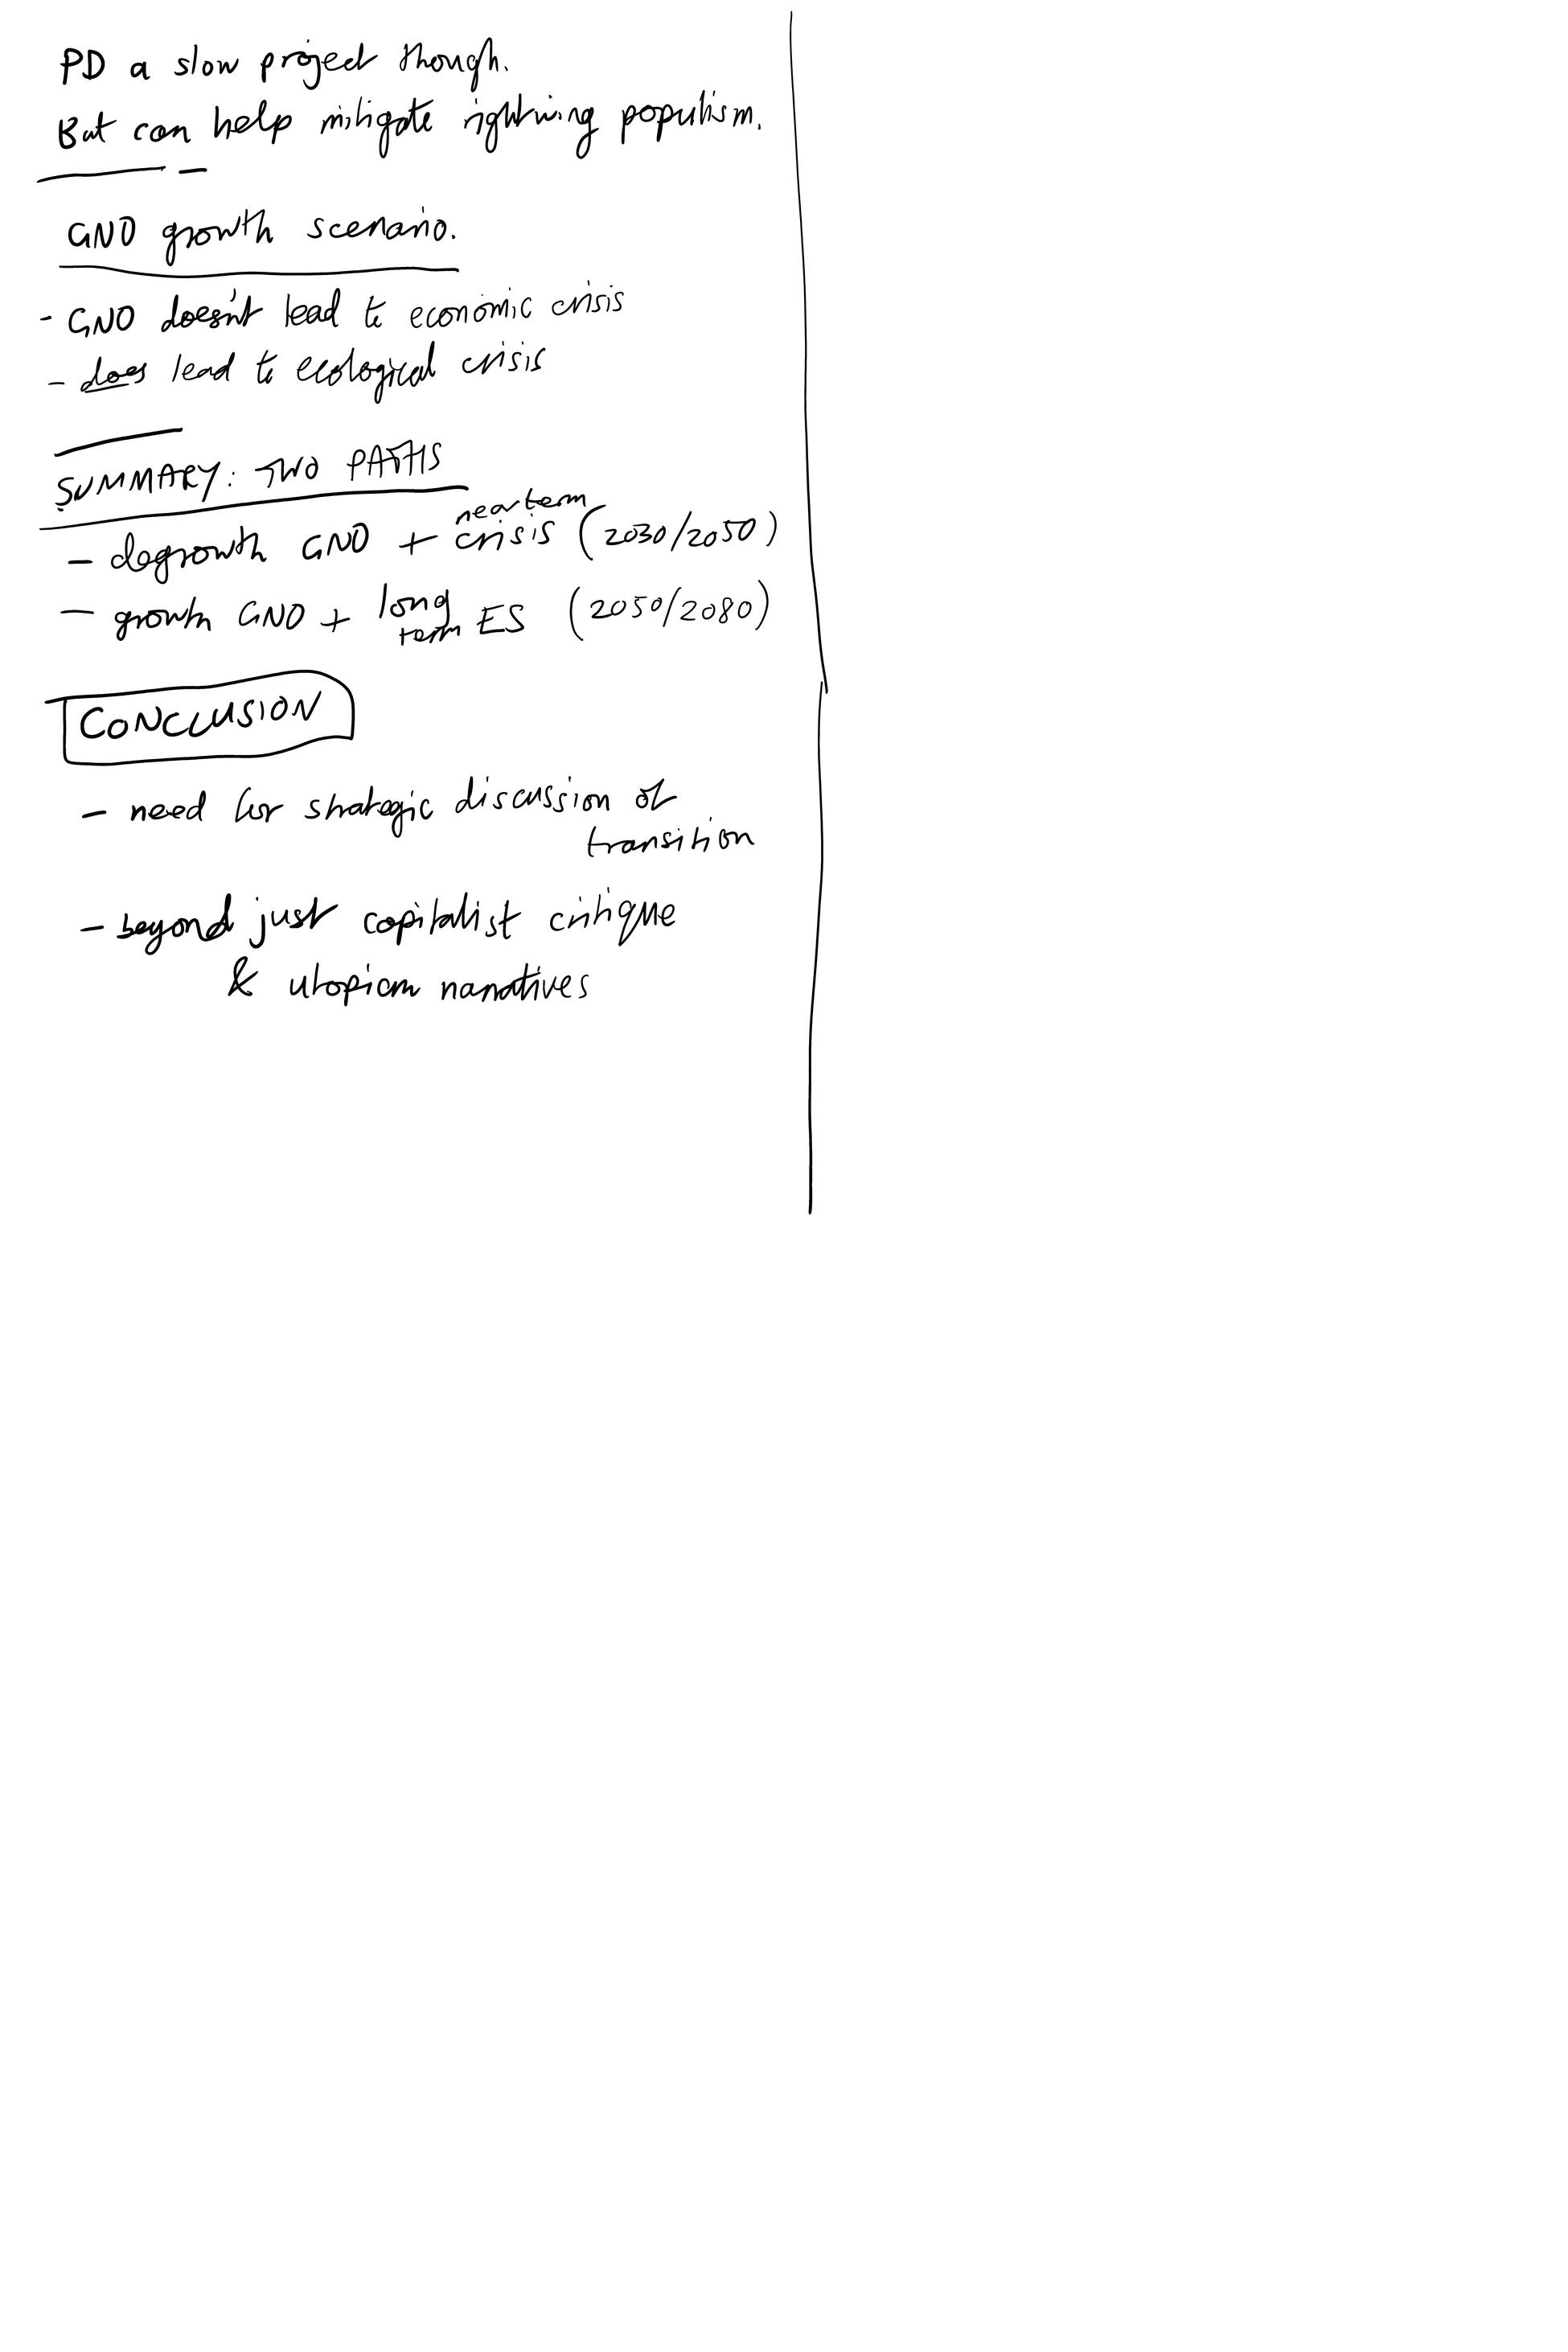 PD a slow project though.
But can help mitigate rightwing populism.
GND growth scenario.
- GND doesn't lead to economic crisis
- does lead to ecological crisis
SUMMARY: TWO PATHS
- degrowth GND + near term crisis (2030/2050)
- growth GND + long term ES (2050/2080)
CONCLUSION
- need for strategic discussion of
transition
- beyond just capitalist critique
& utopian narratives